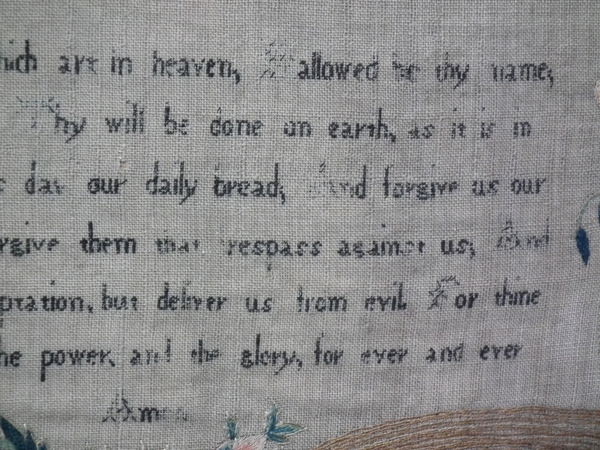 hich art in heaven, Hallowed be thy name,
Thy will be done on earth, as it is in
day our daily bread, And forgive us our
rgive them that trespass against us, And
ptation, but deliver us from evil For thine
he power, and the glory, for ever and ever
Amen